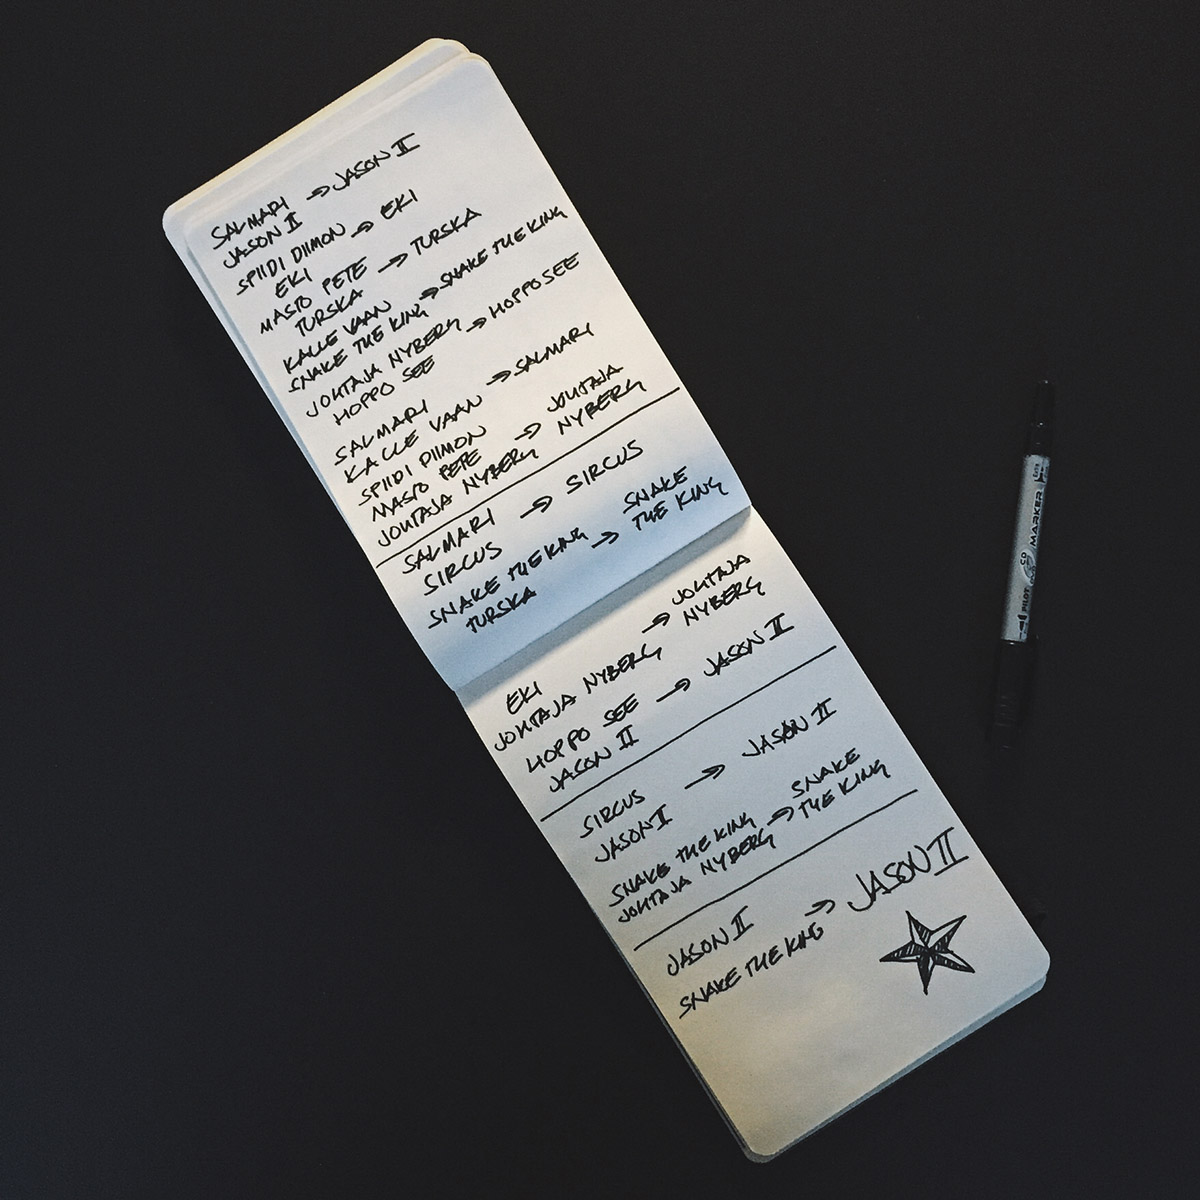 SALMARI → JASON II
JASON II
SPIIDI DIIMON → EKI
EKI
MASTO PETE → TURSKA
TURSKA
KALLE VAAN → SNAKE THE KING
SNAKE THE KING
JOHTAJA NYBERG → HOPPO SEE
HOPPO SEE
SALMARI → SALMARI
KALLE VAAN
SPIIDI DIIMON
MASTO PETE → JOHTAJA NYBERG
JOHTAJA NYBERG
SALMARI → SIRCUS
SIRCUS
SNAKE THE KING → SNAKE THE KING
TURSKA
EKI → JOHTAJA NYBERG
JOHTAJA NYBERG
HOPPO SEE → JASON II
JASON II
SIRCUS → JASON II
JASON II
SNAKE THE KING → SNAKE THE KING
JOHTAJA NYBERG
JASON II → JASON II
SNAKE THE KING
PILOT CD MARKER